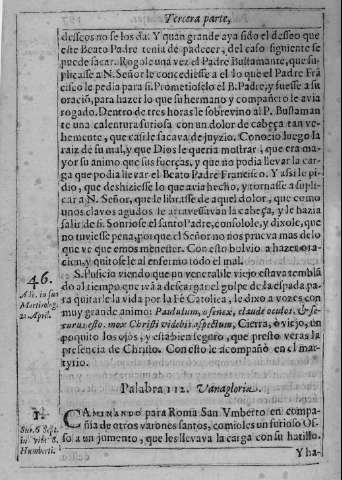 Tercera parte,
desseos no se los da. Y quan grande aya sido el desseo que
este Beato Padre tenia de padecer, del caso siguiente se
puede sacar. Rogole una vez el Padre Bustamante, que su-
plicasse a N. Señor le concediesse a el lo que el Padre Frã
cisco le pedia para si. Prometioselo el B. Padre, y fuesse a su
oració, para hazer lo que su hermano y compañero le avia
rogado. Dentro de tres horas le sobrevino al P. Bustaman
te una calentura furiosa con un dolor de cabeça tan ve-
hemente, que casi le sacava de juyzio. Conocio luego la
raiz de su mal, y que Dios le queria mostrar, que era ma-
yor su animo que sus fuerças, y que no podia llevar la car-
ga que podia llevar el Beato Padre Francisco. Y assi le pi-
dio, que deshiziesse lo que avia hecho, y tornasse a supli-
car a N. Señor, que le librasse de aquel dolor, que como
unos clavos agudos le atravessavan la cabeça, y le hazia
salir de si. Sonriose el santo Padre, consolole, y dixole, que
no tuviesse pena, porque el Señor no nos prueva mas de lo
que ve que emos menester. Con esto bolvio a hazer ora-
cion, y quitosele al enfermo todo el mal.
46.
A do. in suo
Martirolog.
21. April.
S. Pusicio viendo que un venerable viejo estava temblã
do al tiempo que iva a descargar el golpe de la espada pa-
ra quitarle la vida por la Fé Catolica, le dixo a vozes con
muy grande animo: Paulutum, o senex, claude oculos, & se-
curus esto. mox Christi videbis aspectum, Cierra, ò viejo, un
poquito los ojos, y està bien seguro, que presto veras la
presencia de Christo. Con esto le acompañò en el mar-
tyrio.
Palabra 112. Vanagloria.
1.
Sur. 6 Sept.
in vita S.
Humberti.
CAMINANDO para Roma San Umberto en compa-
ñia de otros varones santos, comioles un furioso Os-
so a un jumento, que les llevava la carga con su hatillo.
Y ha-